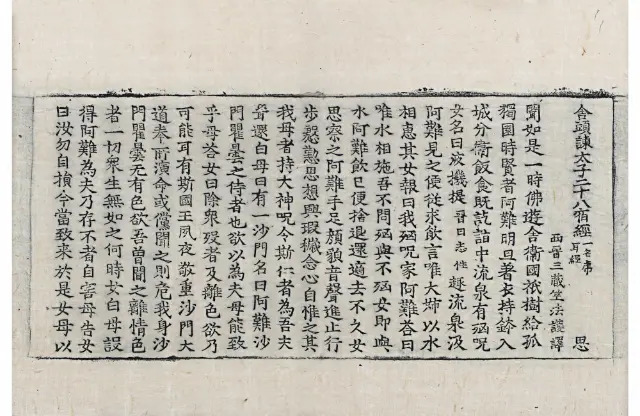 舍頭諫太子二十八宿經 一名虎耳經 思
西晉三藏竺法護譯
聞如是一時佛遊舍衛國祇樹給孤
獨園時賢者阿難明旦著衣持鉢入
城分衛飲食既訖詣中流泉有㓙呪
女名曰波機提 晉曰志性 逐流泉汲
阿難見之便從求飲言唯大姊以水
相惠其女報曰我㓙呪家阿難答曰
唯水相施吾不問㓙與不㓙女即與
水阿難飲已便捨退還適去不久女
思察之阿難手足顏貌音聲進止行
步慇懃思想興瑕穢念心自惟之其
我母者持大神呪今斯仁者為吾夫
聟還白母曰有一沙門名曰阿難沙
門瞿曇之侍者也欲以為夫母能致
乎母答女曰除衆歿者及離色欲乃
可能耳有斯國王夙夜敬重沙門大
道奉所演命或儻聞之則危我身沙
門瞿曇无有色欲吾曽聞之離情色
者一切衆生無如之何時女白母設
得阿難為夫乃存不者自害母告女
曰汝勿自損今當致來於是女母以